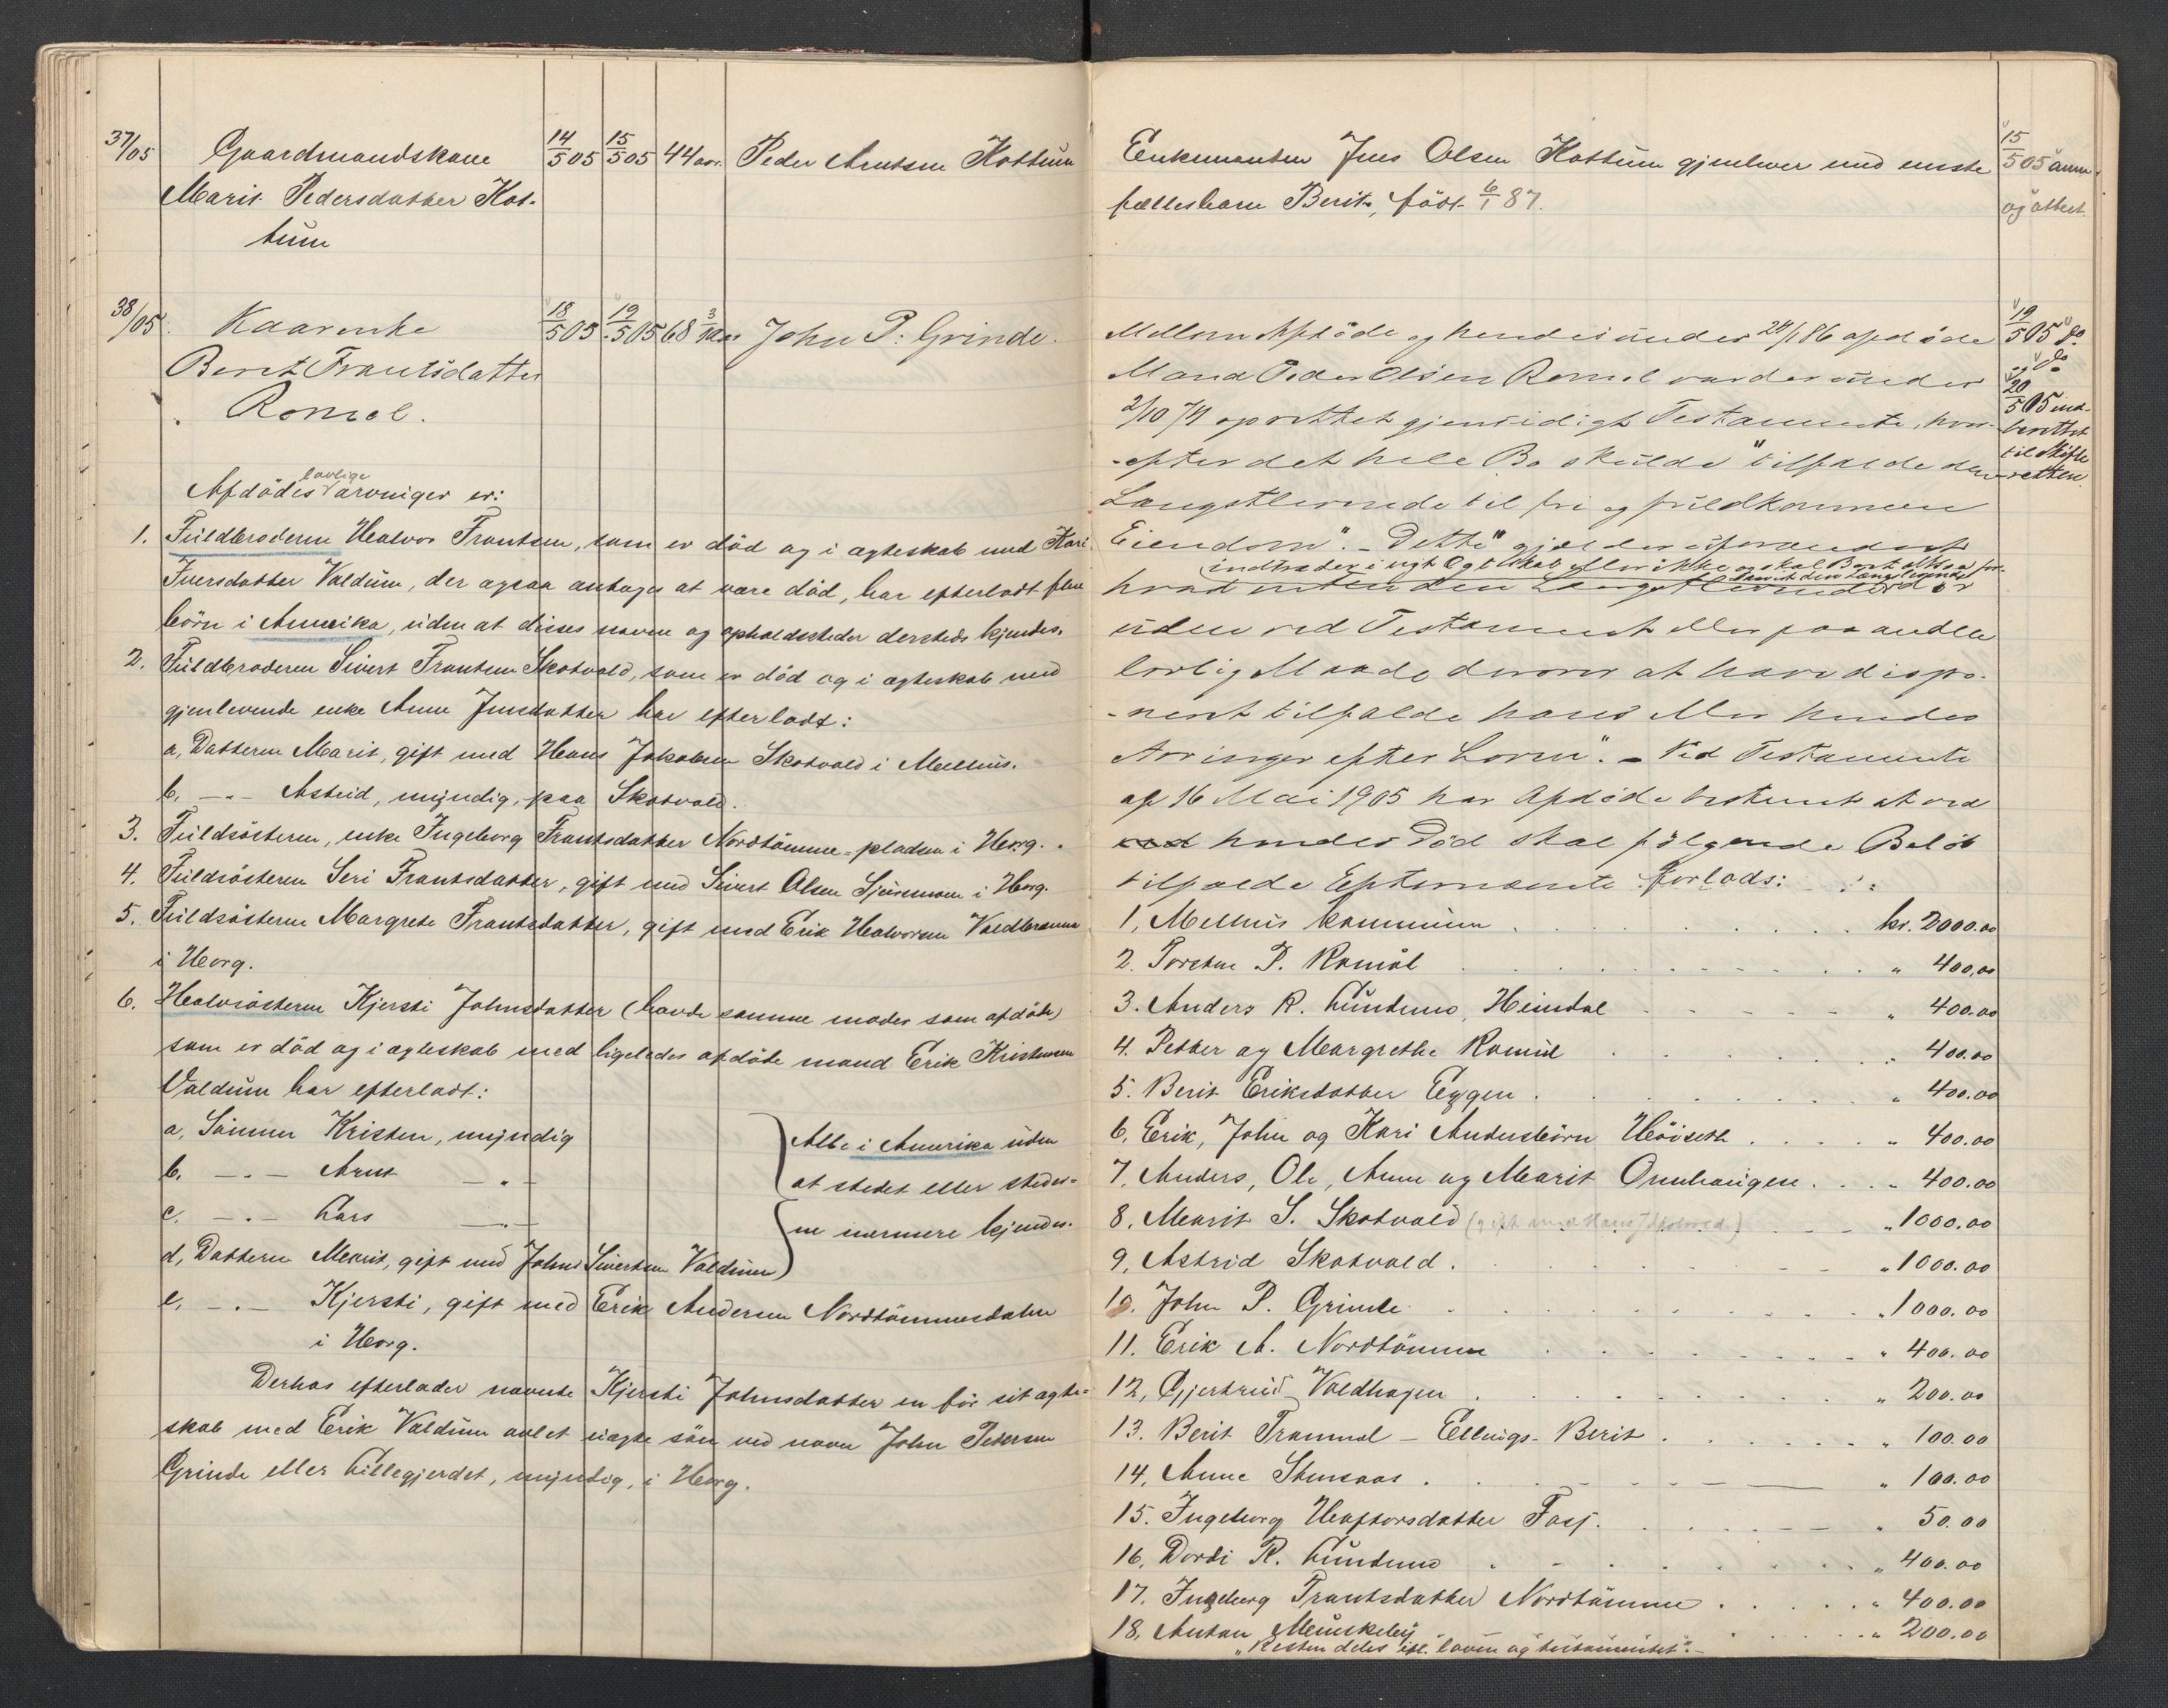 37/05
Gaardmandskone
Marit Pedersdatter Kot-
tum
14/5 05
15/5 05
44 aar.
Peder Arntsen Kottum
38/05.
Kaarenke
Berit Frantsdatter
Romol.
18/5 05
19/5 05
68 3/12 aar
John P. Grinde.
Afdødes lovlige arvinger er:
1. Fuldbroderen Halvor Frantsen, som er död og i ægteskab med Kari
Iversdatter Valdum, der ogsaa antages at være död, har efterladt flere
börn i Amerika, uden at disses navne og opholdssteder dersteds kjendes.
2. Fuldbroderen Sivert Frantsen Skotvold, som er död og i ægteskab med
gjenlevende enke Anne Jensdatter har efterladt:
a, Datteren Marit, gift med Hans Jakobsen Skotvold i Melhus.
b. -"- Astrid, myndig, paa Skotvold.
3. Fuldsösteren, enke Ingeborg Frantsdatter Nordtömme-pladsen i Horg.
4. Fuldsösteren Seri Frantsdatter, gift med Sivert Olsen Sjursmoen i Horg.
5. Fuldsösteren Margrete Frantsdatter, gift med Erik Halvorsen Valdbrauna
i Horg.
6. Halvsösteren Kjersti Johnsdatter (havde samme moder som afdöde)
som er död og i ægteskab med ligeledes afdöde mand Erik Kristensen
Valdum har efterladt:
a, Sönnen Kristen, myndig
b. -"- Arnt -"-
c. -"- Lars -"-
d, Datteren Marit, gift med John Sivertsen Valdum
Alle i Amerika uden
at stedet eller steder-
ne nærmere kjendes.
e, -"- Kjersti, gift med Erik Andersen Nordtömmesdalen
i Horg.
Derhos efterlader nævnte Kjersti Johnsdatter en för sit ægte-
skab med Erik Valdum avlet uægte sön ved navn John Pedersen
Grinde eller Lillegjerdet, myndig, i Horg.
Enkemanden Jens Olsen Kottum gjenlever med eneste
fællesbarn Berit, födt 6/1 87.
15/5 05 anm.
og attest.
Mellem Afdöde og hendes under 24/1 86 afdöde
Mand Peder Olsen Romol var der under
2/10 74 oprettet gjensidigt Testamente, hvor-
-efter det hele Bo skulde "tilfalde den
Længstlevende til fri og fuldkommen
Eiendom". - Dette "gjælder uforandret
indtræder i nyt Ægteskab eller ikke og skal Boet altsaa, for-
hvad enten den Længstlevende dör
uden ved Testament eller paa anden
lovlig Maade derover at have dispo-
-neret tilfalde hans eller hendes
Arvinger efter Loven". - Ved Testamente
af 16 Mai 1905 har Afdöde bestemt at ved
hendes Död skal fölgende Belöb
tilfalde Efternævnte forlods:
19/5 05 do.
og do
20/5 05 ind-
berettet
til Skifte-
retten.
1, Melhus kommune kr. 2000.00
2. Torsten P. Romöl " 400.00
3. Anders R. Lundemo, Heimdal " 400.00
4. Petter og Margrethe Romul " 400.00
5. Berit Eriksdatter Eggen " 400.00
6, Erik, John og Kari Andersbörn Höiseth " 400.00
7, Anders, Ole, Anne og Marit Ounhaugen " 400.00
8, Marit S. Skotvold (gift med Hans J Skotvold.) " 1000.00
9, Astrid Skotvold " 1000.00
10. John P. Grinde " 1000.00
11. Erik A. Nordtömme " 400.00
12, Gjertrud Valdhagen " 200.00
13. Berit Tranmæl - Ellings-Berit " 100.00
14, Anne Stensaas " 100.00
15. Ingeborg Haftorsdatter Fass. " 50.00
16, Dordi R. Lundemo " 400.00
17. Ingeborg Frantsdatter Nordtömme " 400.00
18, Antan " 200.00
"Resten deles efl. loven og testamentet".